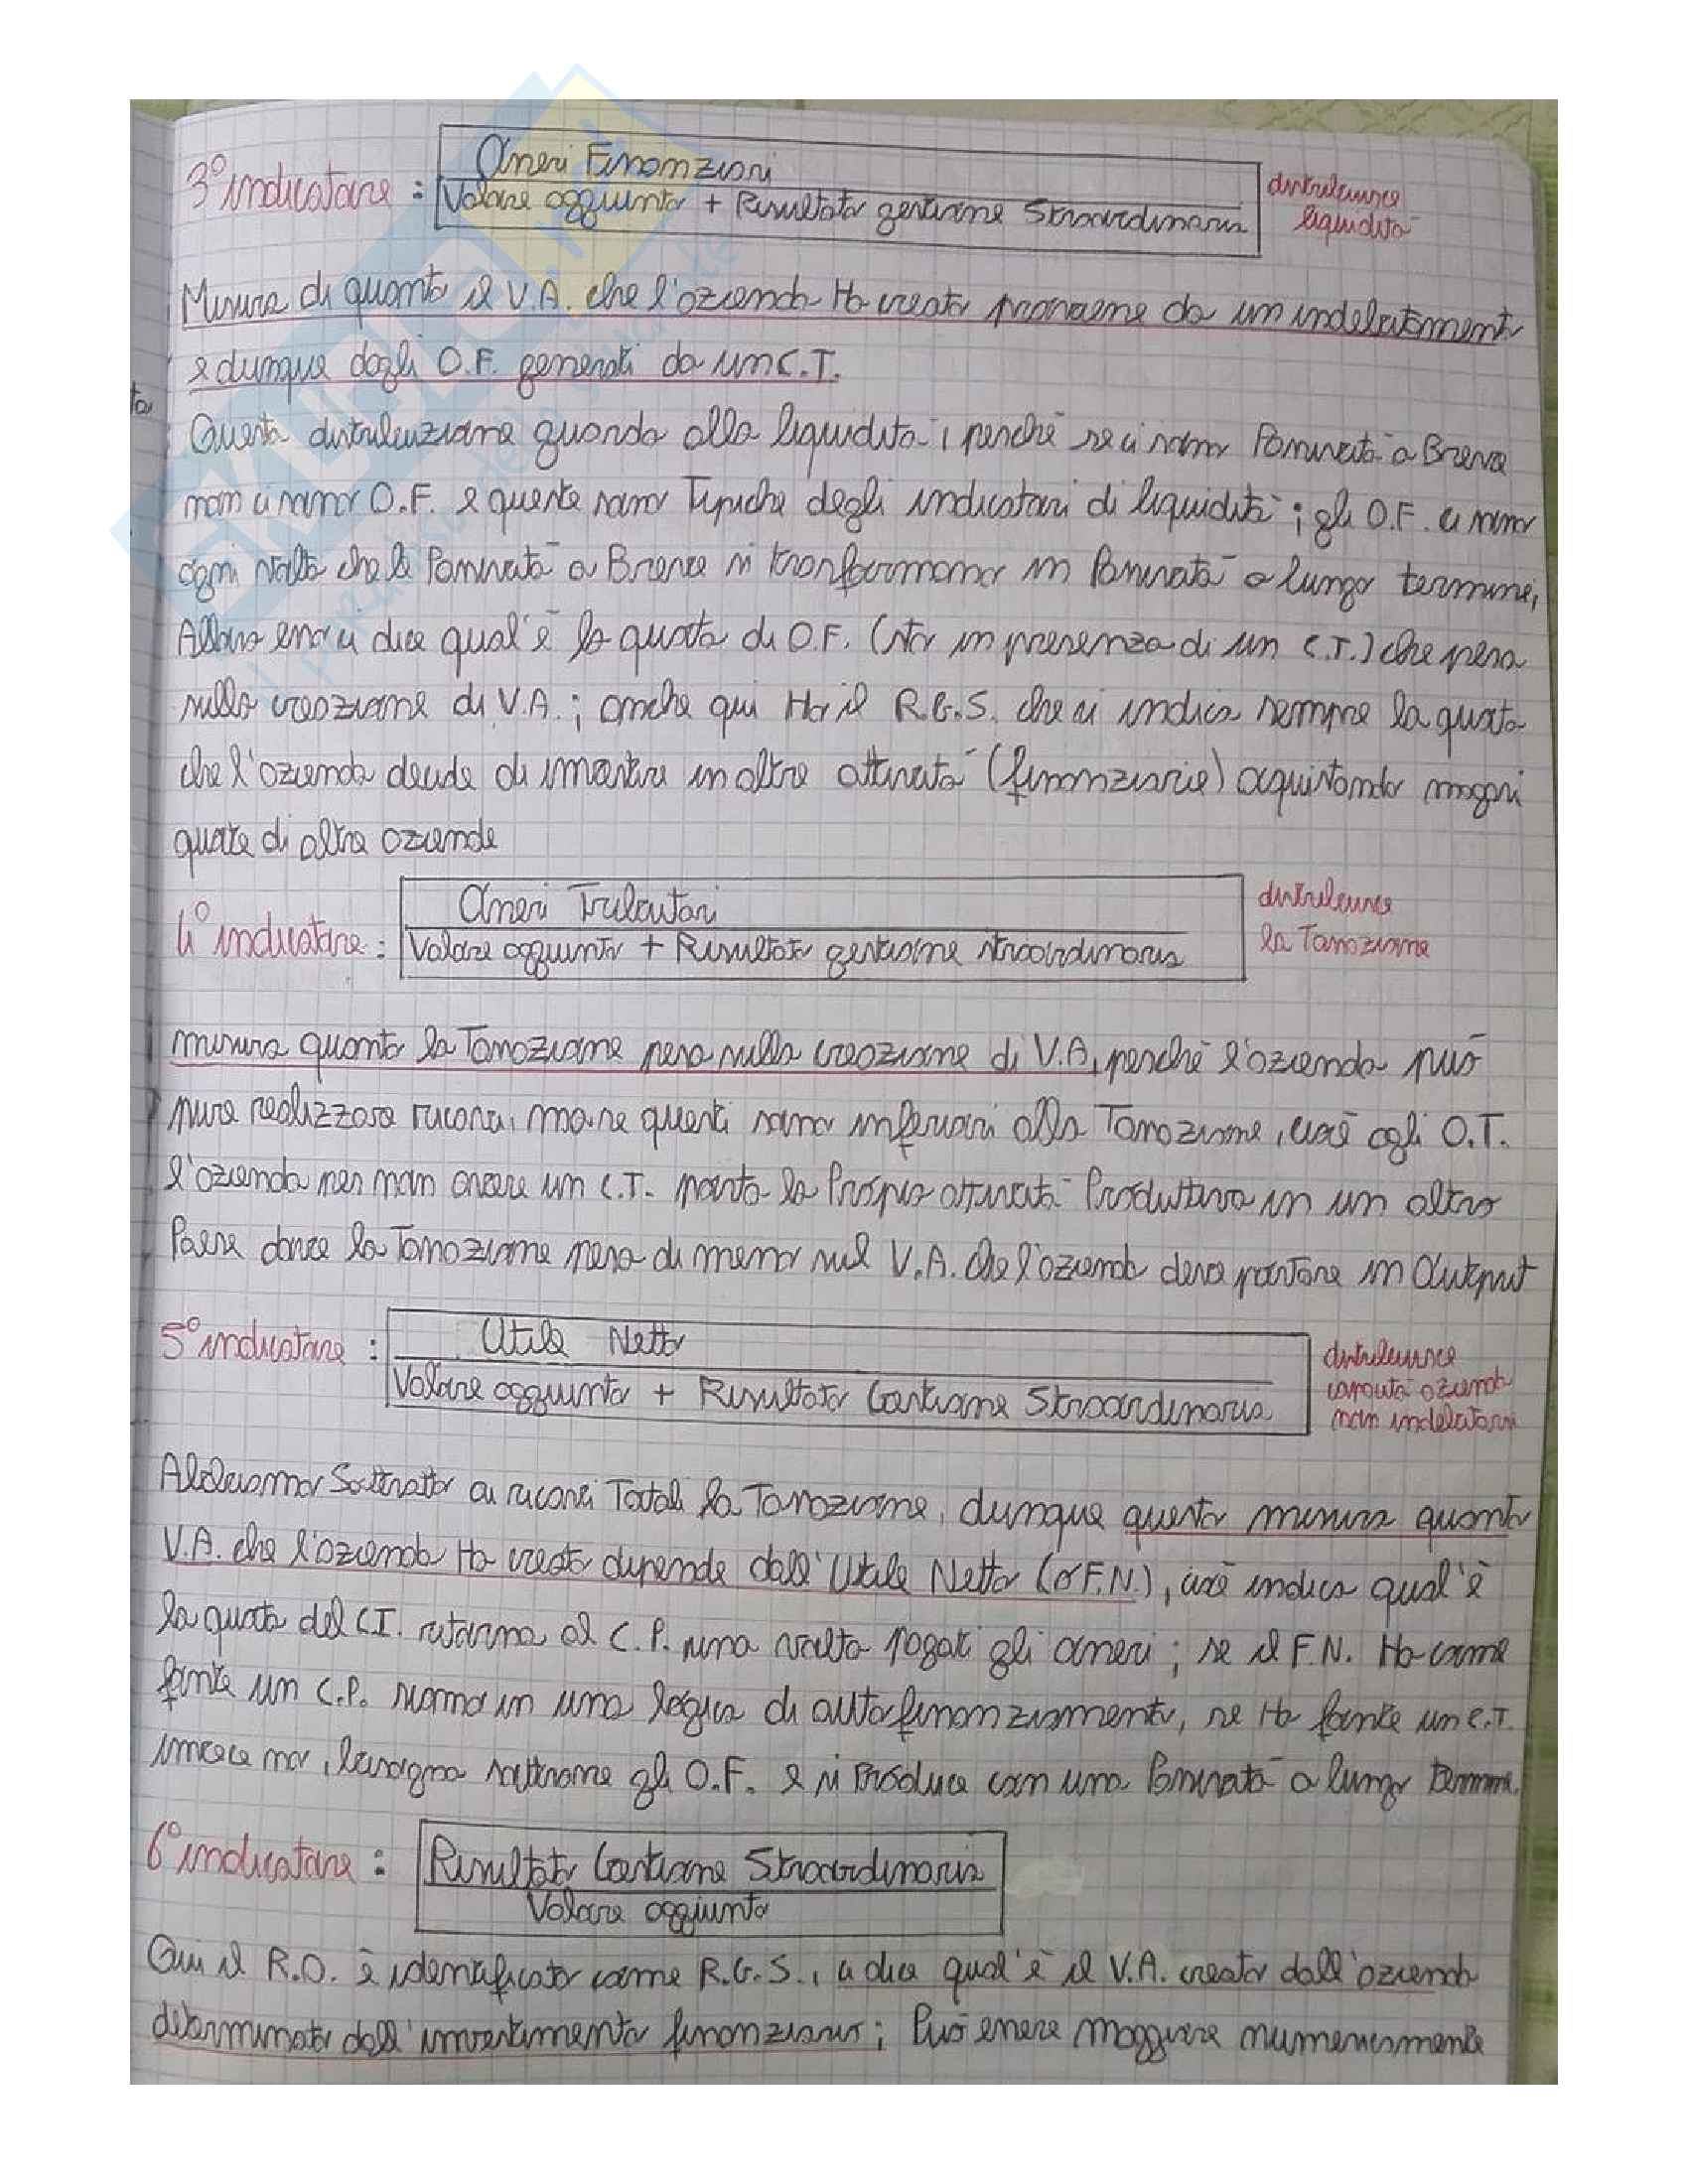 3° indicatore : Oneri Finanziari distribuisce
Valore aggiunto + Risultato gestione Straordinaria liquidità
Misura di quanto il V.A. che l'azienda ha creato proviene da un indebitamento
e dunque dagli O.F. generati da un C.T.
ta
Questa distribuzione guarda alla liquidità, perché se ci sono Passività a Breve
non ci sono O.F. e queste sono Tipiche degli indicatori di liquidità; gli O.F. ci sono
ogni volta che le Passività a Breve si trasformano in Passività a lungo termine,
Allora essa ci dice qual'è la quota di O.F. (sto in presenza di un C.T.) che pesa
sulla creazione di V.A.; anche qui Ho il R.G.S. che ci indica sempre la quota
che l'azienda decide di investire in altre attività (finanziarie) aquistando magari
quote di altre aziende
4° indicatore : Oneri Tributari distribuisce
Valore aggiunto + Risultato gestione straordinaria la Tassazione
misura quanto la Tassazione pesa sulla creazione di V.A, perché l'azienda può
pure realizzare ricavi, ma se questi sono inferiori alla Tassazione, cioè agli O.T.
l'azienda per non avere un C.T. porta la Propria attività Produttiva in un altro
Paese dove la Tassazione pesa di meno sul V.A. che l'azienda deve portare in Output
5° indicatore : Utile Netto distribuisce
Valore aggiunto + Risultato Gestione Straordinaria capacità azienda
non indebitarsi
Abbiamo Sottratto ai ricavi Totali la Tassazione, dunque questo misura quanto
V.A. che l'azienda Ha creato dipende dall'Utile Netto (o F.N.), cioè indica qual'è
la quota del C.I. ritorna al C.P. una volta pagati gli oneri; se il F.N. Ha come
fonte un C.P. siamo in una logica di autofinanziamento, se Ha fonte un C.T.
invece no, bisogna sottrarre gli O.F. e si Produce con una Passività a lungo termine.
6° indicatore : Risultato Gestione Straordinaria
Valore aggiunto
Qui il R.O. è identificato come R.G.S., ci dice qual'è il V.A. creato dall'azienda
determinato dall'investimento finanziario; Può essere maggiore numericamente